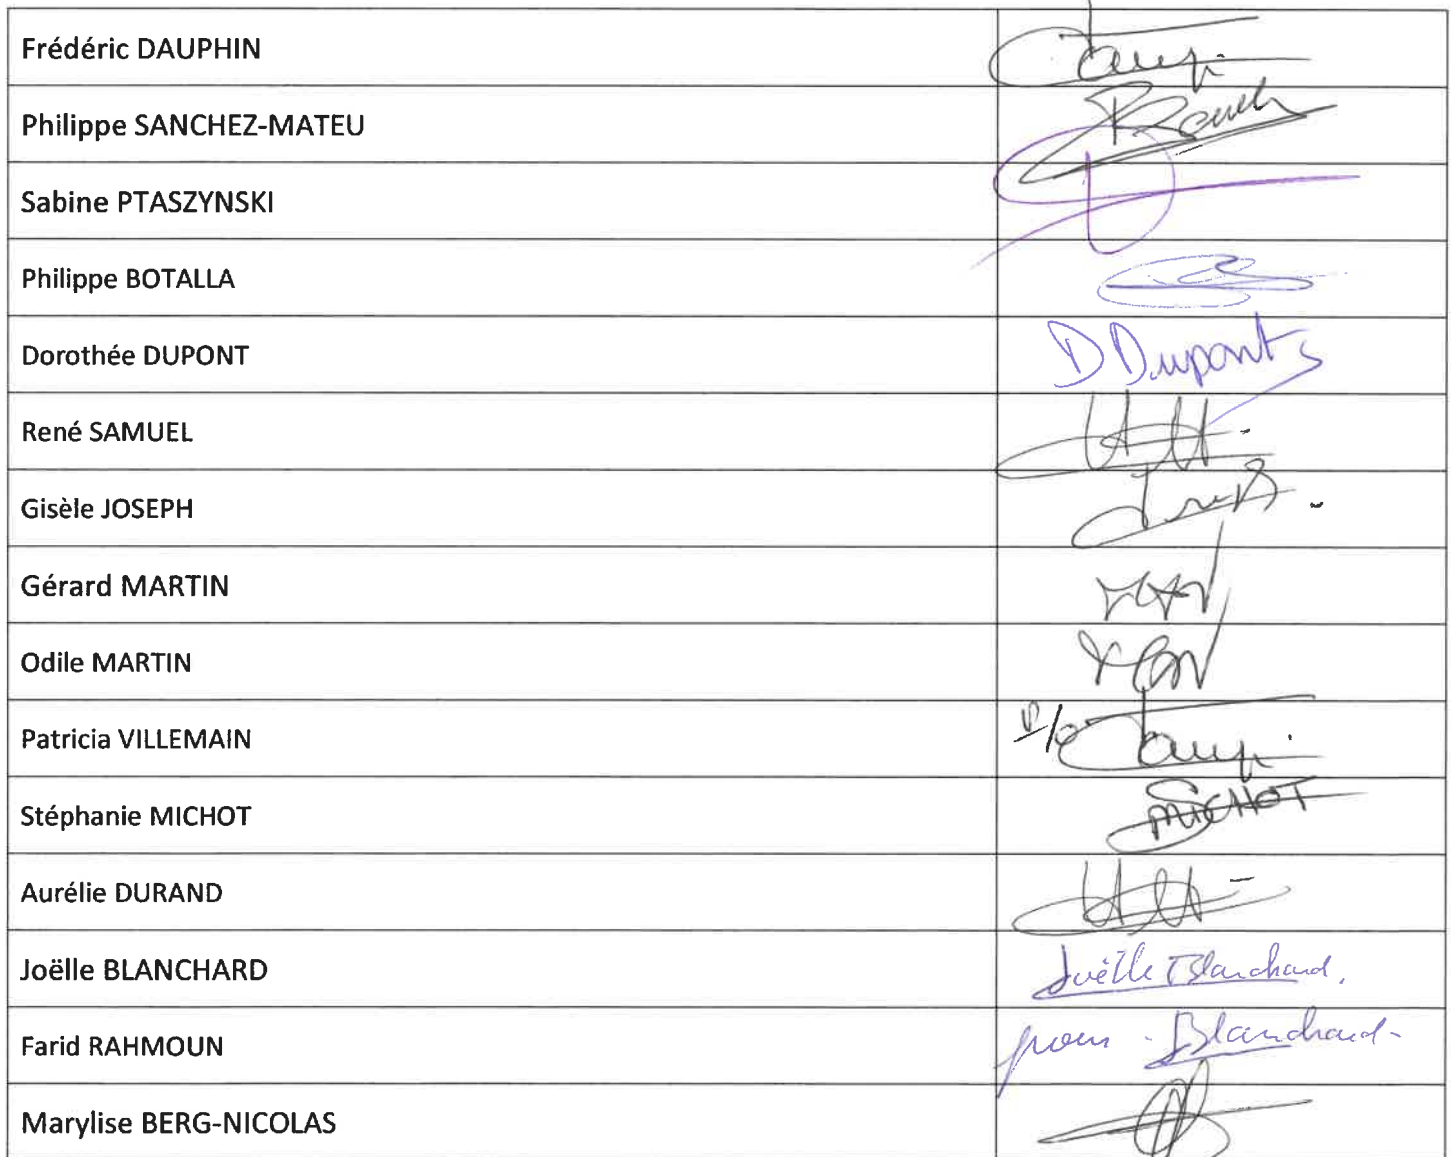 Frédéric DAUPHIN
Philippe SANCHEZ-MATEU
Sabine PTASZYNSKI
Philippe BOTALLA
Dorothée DUPONT D Dupont
René SAMUEL
Gisèle JOSEPH
Gérard MARTIN
Odile MARTIN
Patricia VILLEMAIN P/o
Stéphanie MICHOT MICHOT
Aurélie DURAND
Joëlle BLANCHARD Joëlle Blanchard.
Farid RAHMOUN pour - Blanchard-
Marylise BERG-NICOLAS